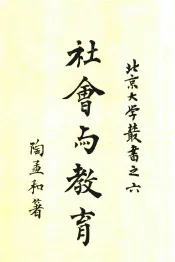 北京大学叢書之六
社會与教育
陶孟和著